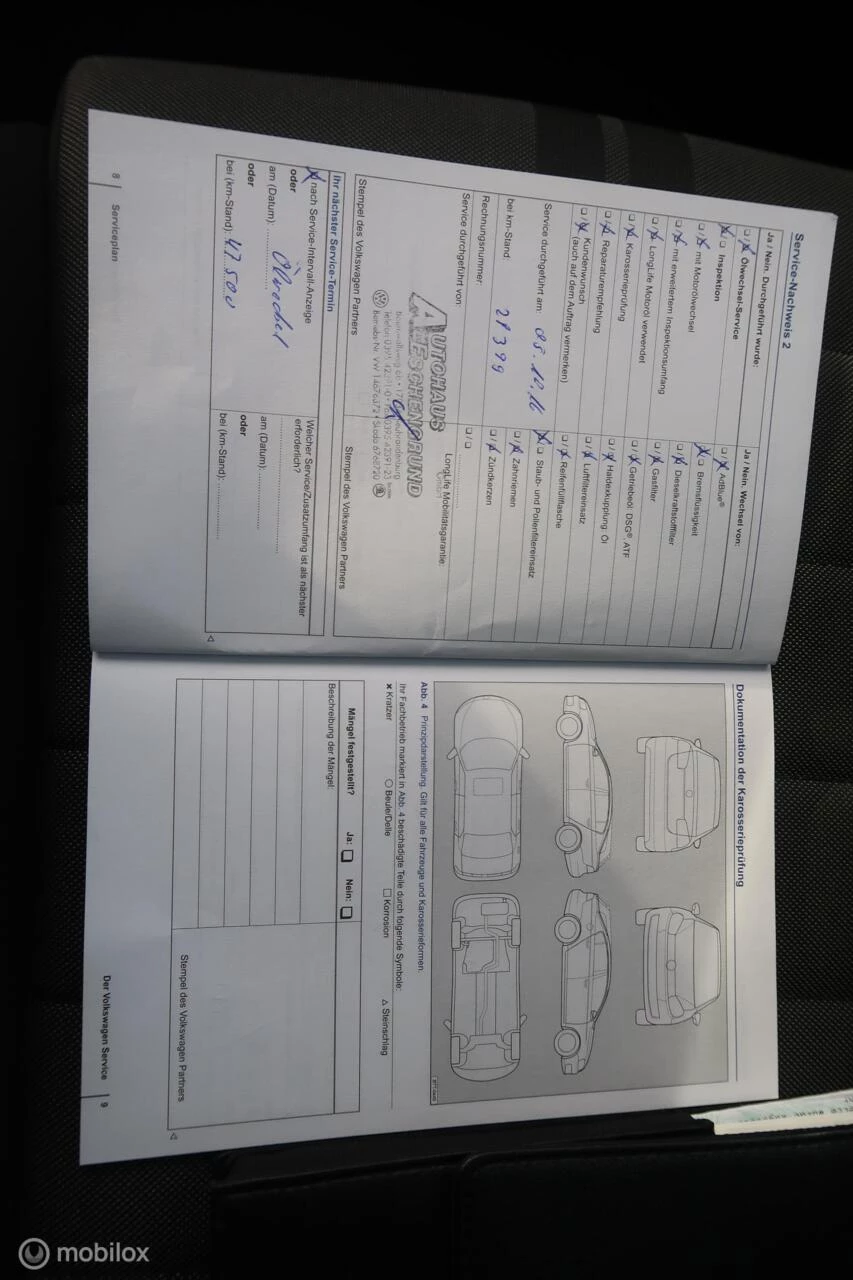 Service-Nachweis 2
Ja / Nein. Durchgeführt wurde:
Ölwechsel-Service
Inspektion
mit Motorölwechsel
mit erweitertem Inspektionsumfang
LongLife Motoröl verwendet
Karosserieprüfung
Reparaturempfehlung
Kundenwunsch
(auch auf dem Auftrag vermerken)
Service durchgeführt am: 05.10.16
bei km-Stand: 28399
Rechnungsnummer:
Service durchgeführt von:
Ja / Nein. Wechsel von:
AdBlue®
Bremsflüssigkeit
Dieselkraftstofffilter
Gasfilter
Getriebeöl: DSG® ATF
Haldexkupplung: Öl
Luftfiltereinsatz
Reifenfüllflasche
Staub- und Pollenfiltereinsatz
Zahnriemen
Zündkerzen
LongLife Mobilitätsgarantie:
AUTOHAUS
GmbH
Stempel des Volkswagen Partners
Stempel des Volkswagen Partners
Ihr nächster Service-Termin
nach Service-Intervall-Anzeige
oder
am (Datum): Ölwechsel
oder
bei (km-Stand): 47.500
Welcher Service/Zusatzumfang ist als nächster
erforderlich?
am (Datum):
oder
bei (km-Stand):
8 Serviceplan
Dokumentation der Karosserieprüfung
Abb. 4 Prinzipdarstellung. Gilt für alle Fahrzeuge und Karosserieformen.
Ihr Fachbetrieb markiert in Abb. 4 beschädigte Teile durch folgende Symbole:
Kratzer Beule/Delle Korrosion Steinschlag
Mängel festgestellt? Ja: Nein:
Beschreibung der Mängel:
Stempel des Volkswagen Partners
Der Volkswagen Service 9
mobilox